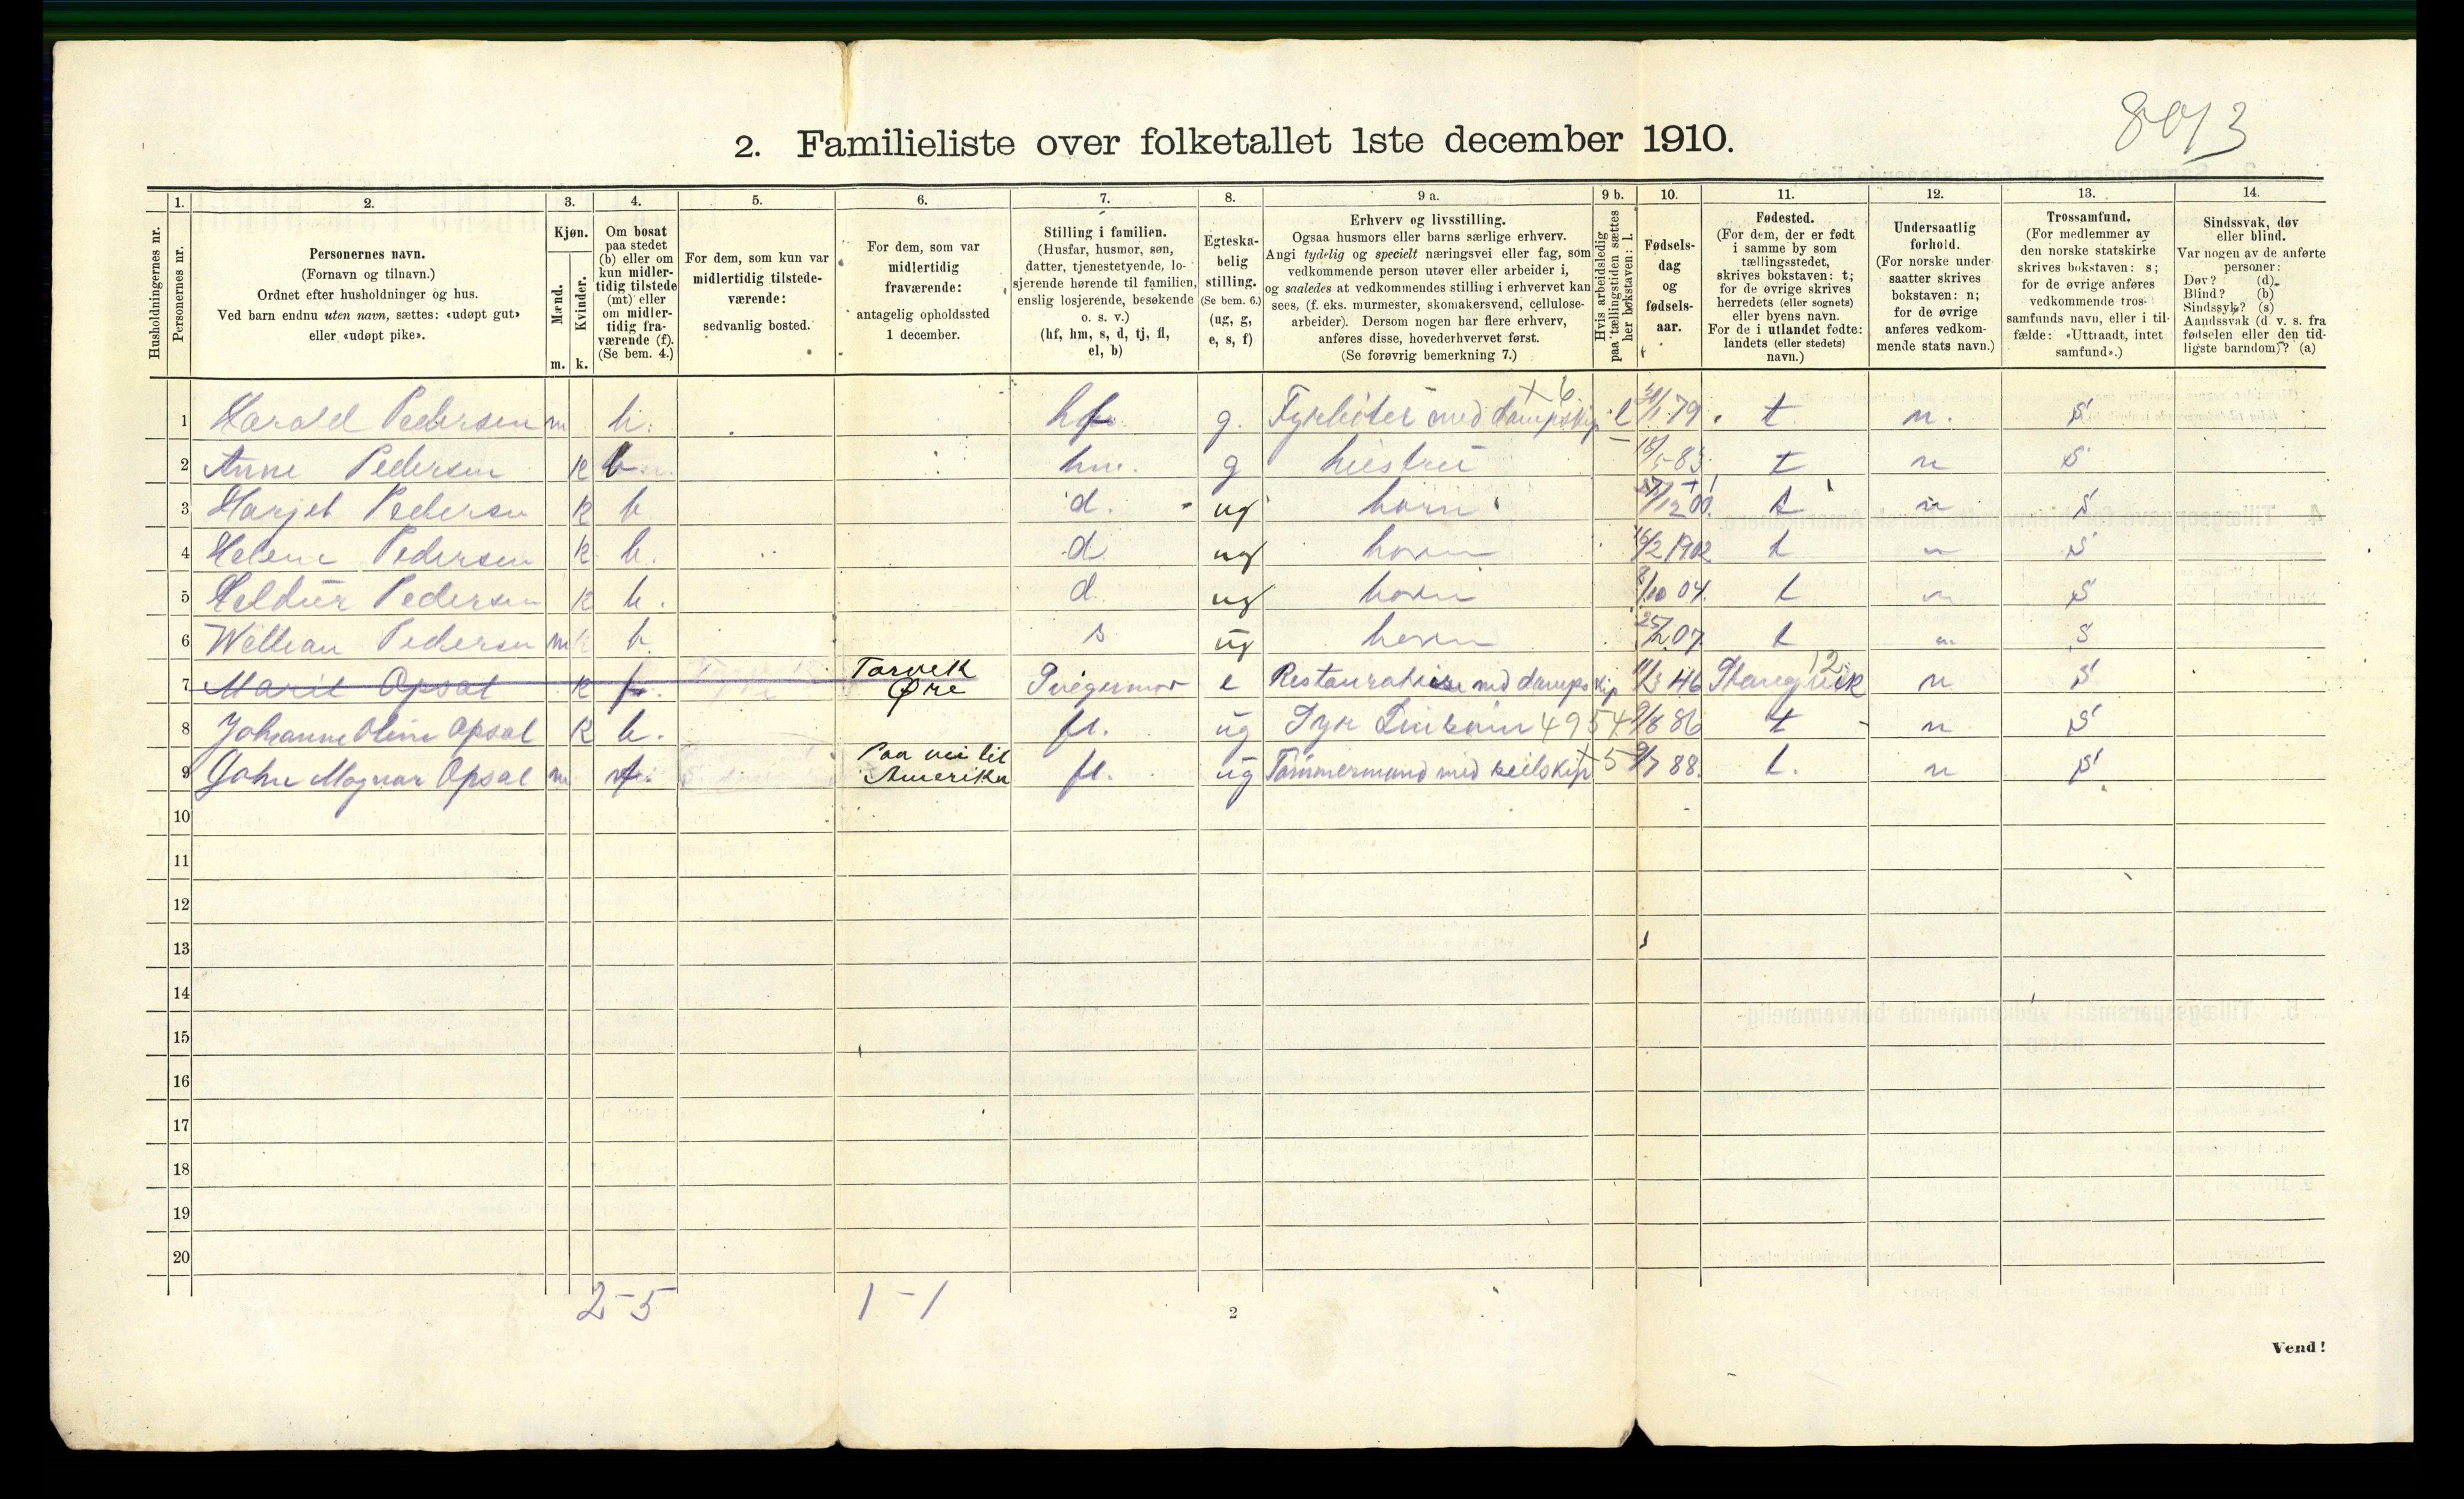 8013
2. Familieliste over folketallet 1ste december 1910.
Husholdningernes nr.
1. Personernes nr.
2.
Personernes navn.
(Fornavn og tilnavn.)
Ordnet efter husholdninger og hus.
Ved barn endnu uten navn, sættes: «udøpt gut»
eller «udøpt pike».
3.
Kjøn.
Mænd. m.
Kvinder. k.
4.
Om bosat
paa stedet
(b) eller om
kun midler-
tidig tilstede
(mt) eller
om midler-
tidig fra-
værende (f).
(Se bem. 4.)
5.
For dem, som kun var
midlertidig tilstede-
værende:
sedvanlig bosted.
6.
For dem, som var
midlertidig
fraværende:
antagelig opholdssted
1 december.
7.
Stilling i familien.
(Husfar, husmor, søn,
datter, tjenestetyende, lo-
sjerende hørende til familien,
enslig losjerende, besøkende
o. s. v.)
(hf, hm, s, d, tj, fl,
el, b)
8.
Egteska-
belig
stilling.
(Se bem. 6.)
(ug, g,
e, s, f)
9 a.
Erhverv og livsstilling.
Ogsaa husmors eller barns særlige erhverv.
Angi tydelig og specielt næringsvei eller fag, som
vedkommende person utøver eller arbeider i,
og saaledes at vedkommendes stilling i erhvervet kan
sees, (f. eks. murmester, skomakersvend, cellulose-
arbeider). Dersom nogen har flere erhverv,
anføres disse, hovederhvervet først.
(Se forøvrig bemerkning 7.)
9 b.
Hvis arbeidsledig
paa tællingstiden sættes
her bokstaven: l.
10.
Fødsels-
dag
og
fødsels-
aar.
11.
Fødested.
(For dem, der er født
i samme by som
tællingsstedet,
skrives bokstaven: t;
for de øvrige skrives
herredets (eller sognets)
eller byens navn.
For de i utlandet fødte:
landets (eller stedets)
navn.)
12.
Undersaatlig
forhold.
(For norske under-
saatter skrives
bokstaven: n;
for de øvrige
anføres vedkom-
mende stats navn.)
13.
Trossamfund.
(For medlemmer av
den norske statskirke
skrives bokstaven: s;
for de øvrige anføres
vedkommende tros-
samfunds navn, eller i til-
fælde: «Uttraadt, intet
samfund».)
14.
Sindssvak, døv
eller blind.
Var nogen av de anførte
personer:
Døv? (d)
Blind? (b)
Sindssyk? (s)
Aandssvak (d. v. s. fra
fødselen eller den tid-
ligste barndom)? (a)
1 Harald Pedersen m b. hf. g. Fyrbøter med dampskip x 6 l 79 t n. S
2 Anne Pedersen k b hm. g hustru 18/5 83 t n S
3 Marjet Pedersen k b d. ug barn /12 00. t n S
4 Helene Pedersen k b. d ug barn 16/2 1902 t n S
5 Heldur Pedersen k b. d. ug barn 8/10 04. t n S
6 Welhan Pedersen m b s ug barn 25/2 07. t n S
7 Marit Opsal k f. Torvik Øre Svigermor e med dampskip 11/3 46 12 n S
8 Johanne Oline Opsal k b. fl. ug 4954 9/8 86 t n S
9 John Magnar Opsal m f. Paa vei til Amerika fl. ug Tømmermand med seilskip x 5 9/7 88. t. n S
10
11
12
13
14
15
16
17
18
19
20
2-5 1-1
2
Vend!